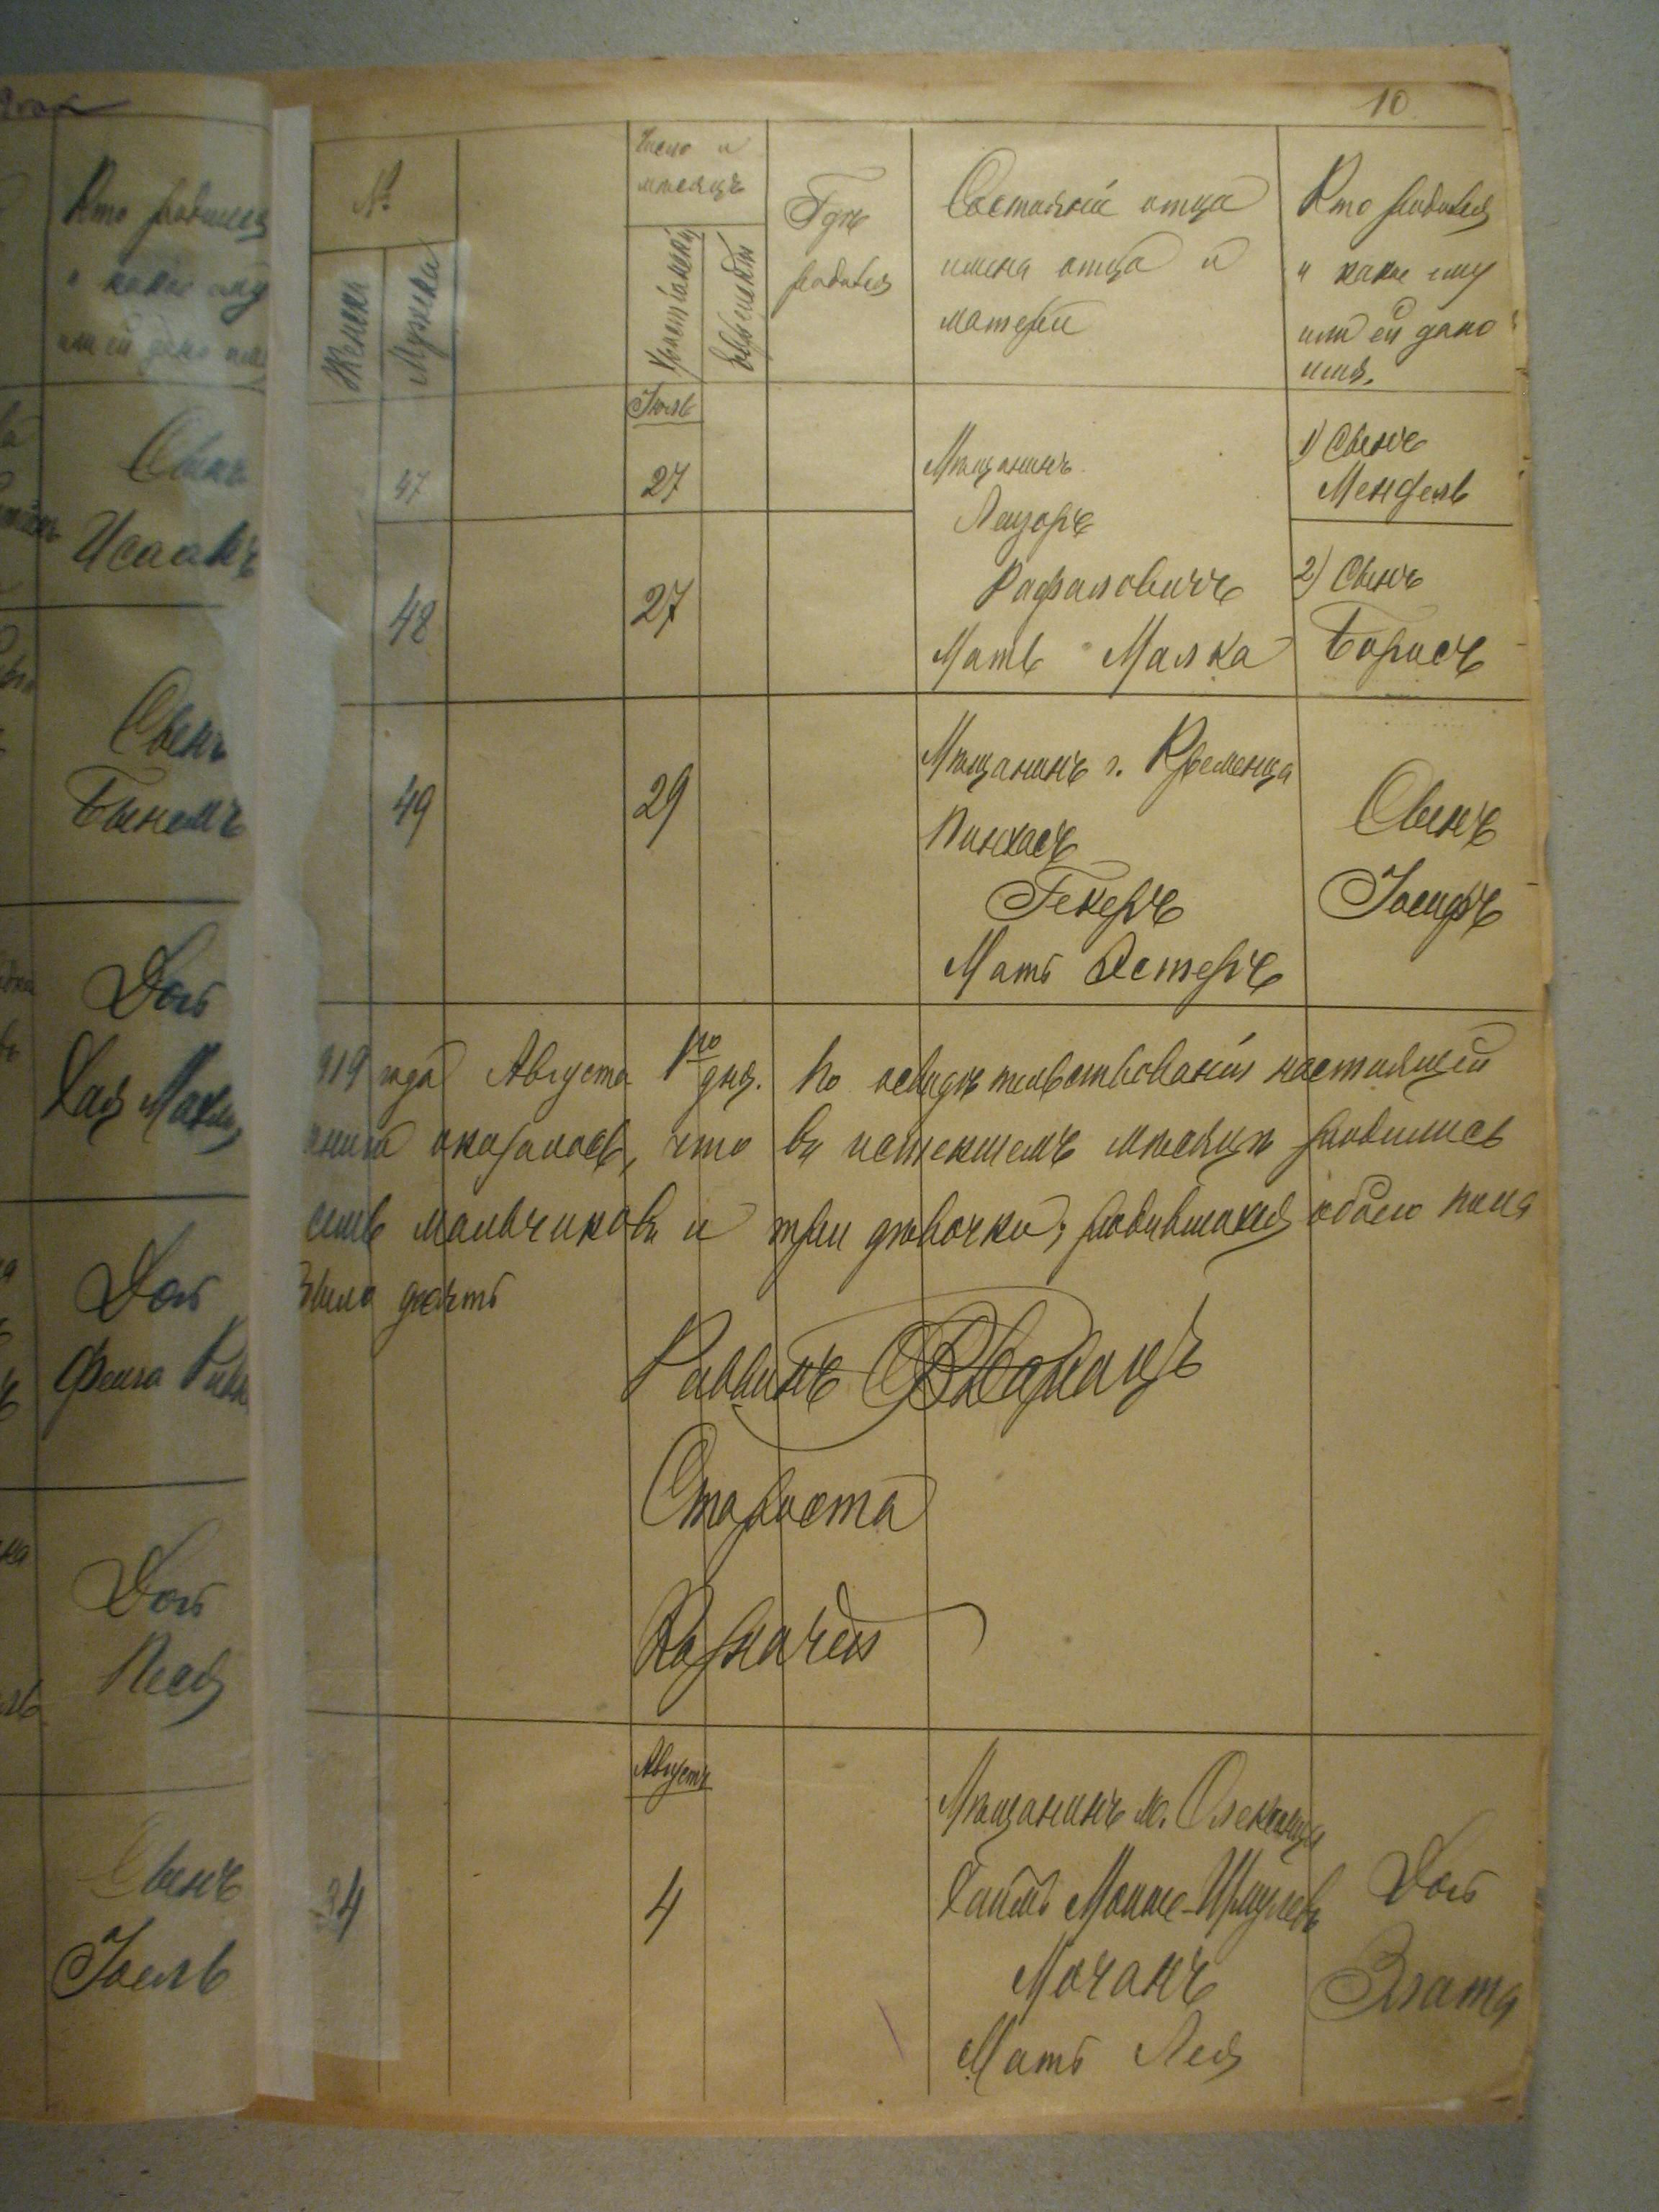 Кто родился
и какое ему
или ей дано имя
Сынъ
Исаакъ
Сынъ
Бынемъ
Дочь
Хая
Дочь
Фейга
Дочь
Песя
Сынъ
Іоель
10
№
Женска
Мужеска
Число и
мѣсяцъ
Христіанскій
Еврейскій
Гдѣ
родился
Состояніе отца
имена отца и
матери
Кто родился
и какое ему
или ей дано
имя.
Іюль
47
27
Мѣщанинъ
Лейзоръ
Рафаловичъ
Мать Малка
1) Сынъ
Мендель
48
27
2) Сынъ
Борисъ
49
29
Мѣщанинъ г. Кременца
Пинхасъ
Гекеръ
Мать Эстеръ
Сынъ
Іосифъ
919 года Августа 1го дня. По освидѣтельствованіи настоящей
книги оказалось, что въ истекшемъ мѣсяцѣ родились
семь мальчиковъ и три дѣвочки; родившихся обоего пола
было десять
Раввинъ
Староста
Казначей
Августъ
24
4
Мѣщанинъ м. Олексинца
Хаимъ Мошко-Шмулевъ
Мочанъ
Мать Лея
Дочь
Злата